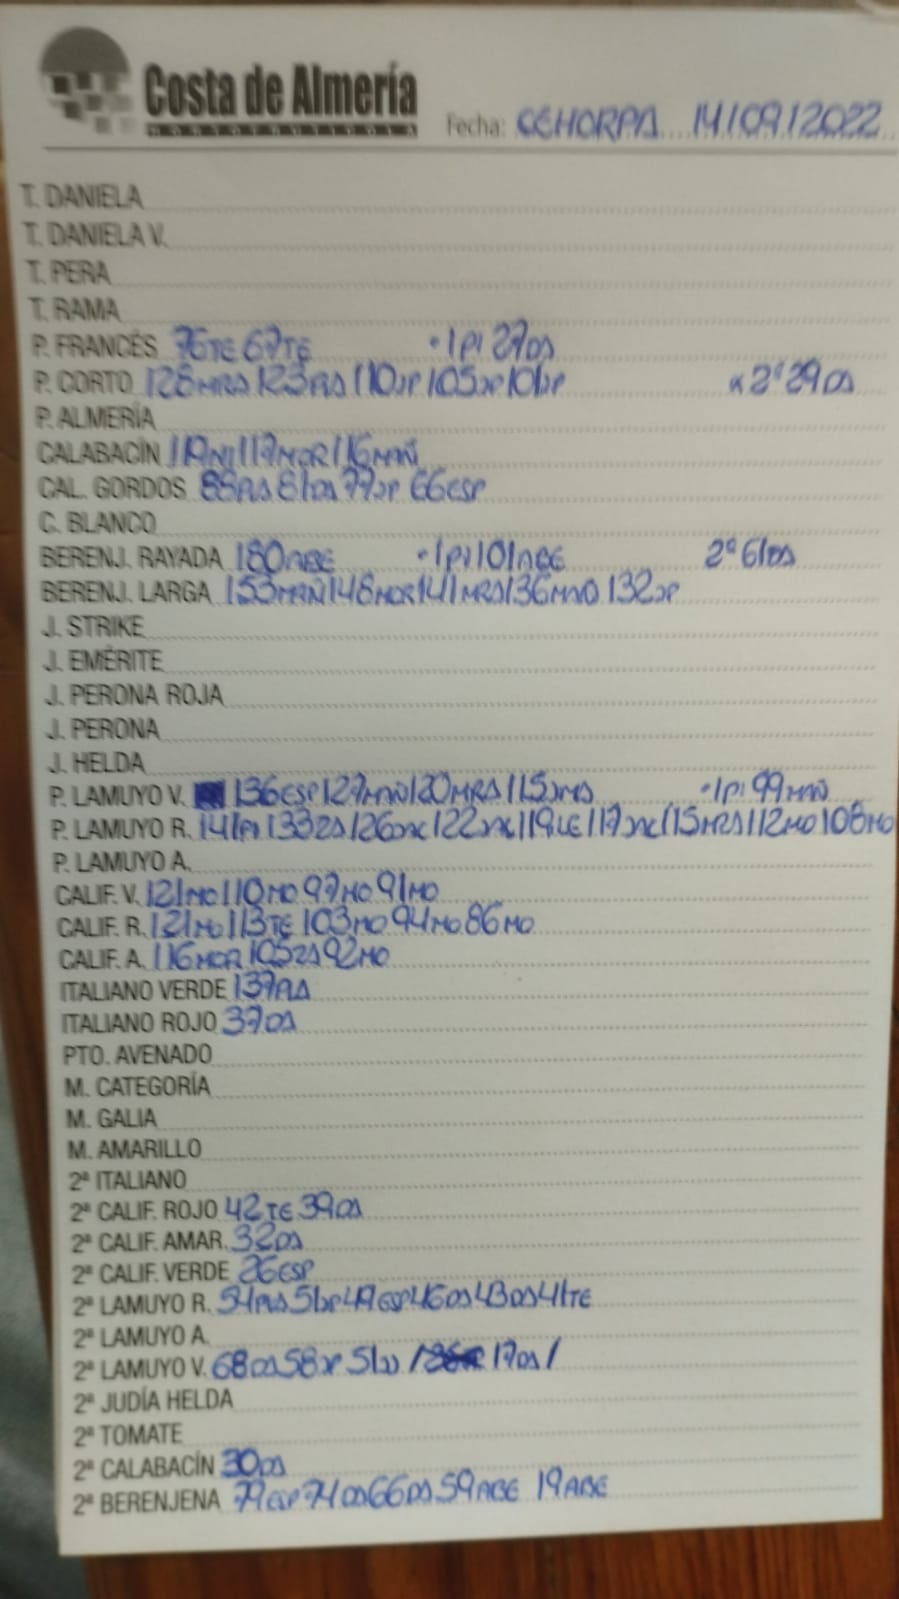 Costa de Almería
HORTOFRUTICOLA
Fecha: CEHORPA 14/09/2022
T. DANIELA
T. DANIELA V.
T. PERA
T. RAMA
P. FRANCÉS 76TE 67TE ·1P: 27DS
P. CORTO 128MRA 123PLA 110JP 105JP 101JP x 2ª 29 DS
P. ALMERÍA
CALABACÍN 119NI 117MOR 116MAÑ
CAL. GORDOS 88PLA 81DS 77JP 66ESP
C. BLANCO
BERENJ. RAYADA 180ABE ·1P: 101ABE 2ª 61DS
BERENJ. LARGA 153MAÑ 148MOR 141MRA 136MAÑ 132JP
J. STRIKE
J. EMÉRITE
J. PERONA ROJA
J. PERONA
J. HELDA
P. LAMUYO V. 136ESP 127MAÑ 120MRA 115 ·1P: 99MAÑ
P. LAMUYO R. 141PI 133ZA 126 122 119LE 117 115MRA 112MO 108MO
P. LAMUYO A.
CALIF. V. 121MO 110MO 97MO 91MO
CALIF. R. 121MO 113TE 103MO 94MO 86MO
CALIF. A. 116MOR 105ZA 92MO
ITALIANO VERDE 137PLA
ITALIANO ROJO 37DS
PTO. AVENADO
M. CATEGORÍA
M. GALIA
M. AMARILLO
2ª ITALIANO
2ª CALIF. ROJO 42TE 39DS
2ª CALIF. AMAR. 32DS
2ª CALIF. VERDE 26ESP
2ª LAMUYO R. 54PLA 51JP 49ESP 46DS 43DS 41TE
2ª LAMUYO A.
2ª LAMUYO V. 68DS 58JP 51 / 17DS /
2ª JUDÍA HELDA
2ª TOMATE
2ª CALABACÍN 30DS
2ª BERENJENA 79ESP 74DS 66DS 59ABE 19ABE